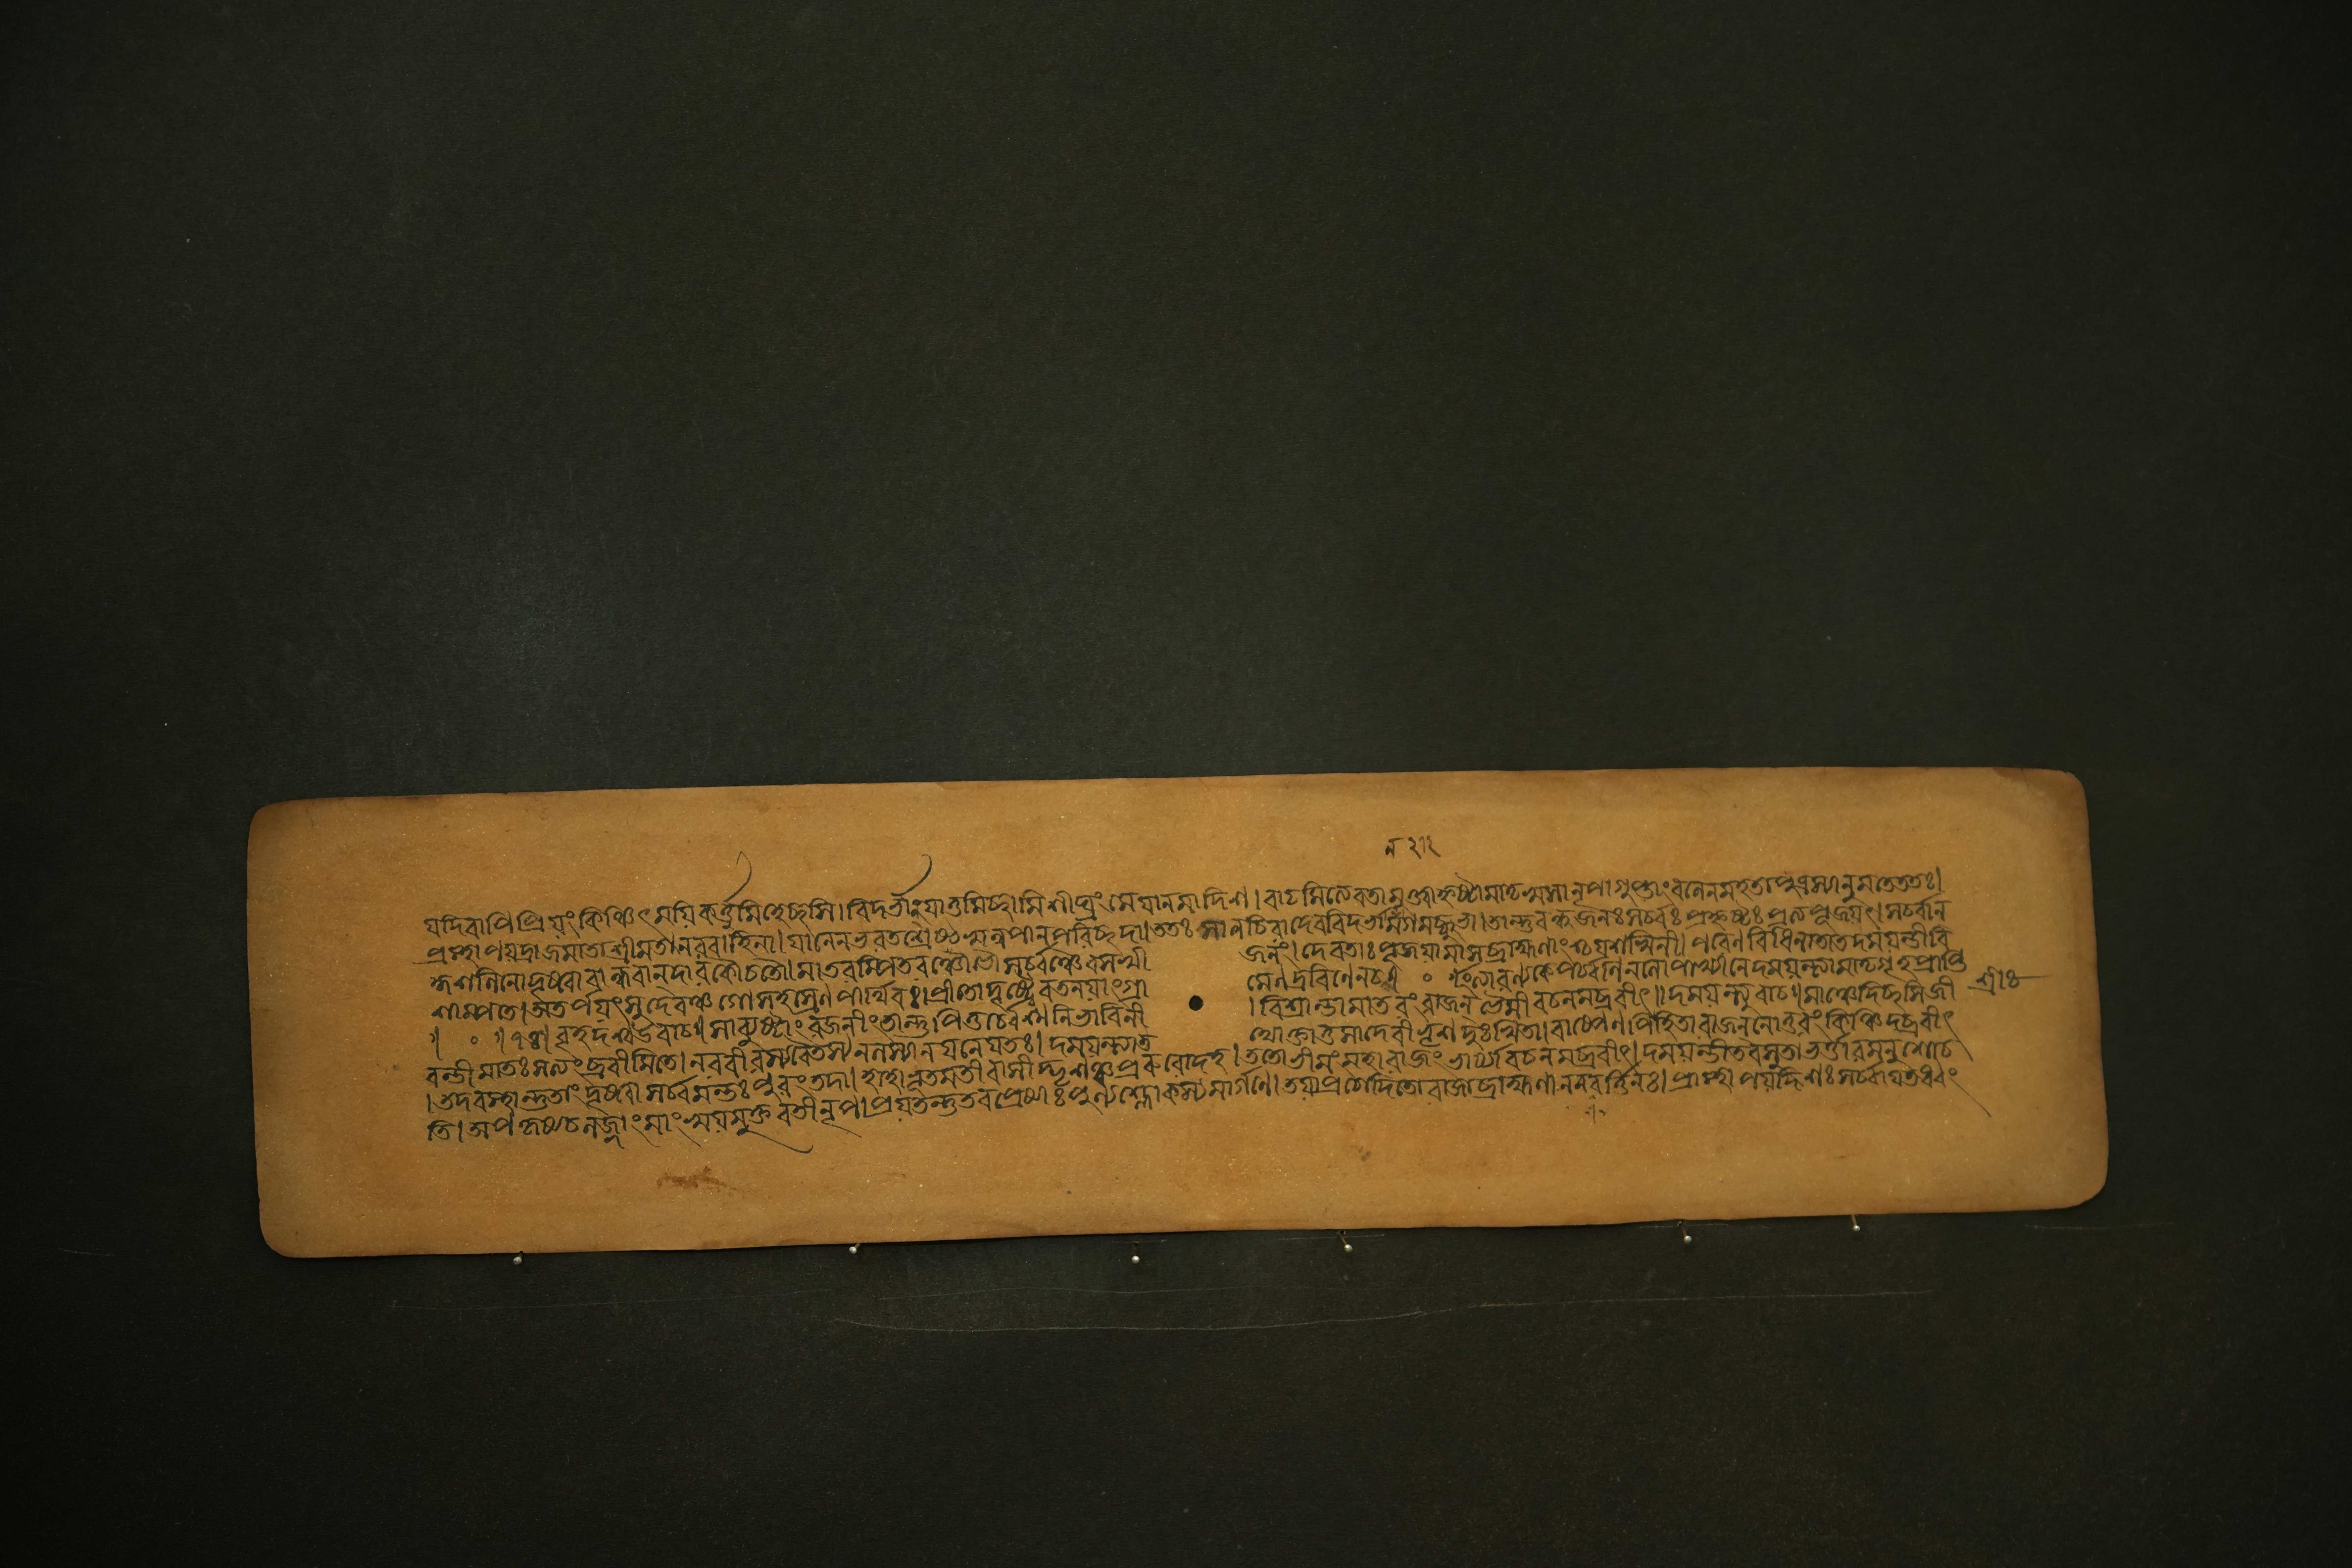 ন २१२
যদিবাপিপ্রিয়ংকিঞ্চিৎময়িকর্ত্তুমিহেচ্ছসি।বিদর্ভান্যাতুমিচ্ছামিশীঘ্রংমেযানমাদিশ।বাঢমিত্যেবতামুক্ত্বাহৃষ্টামাতৃষ্বসানৃপ।গুপ্তাংবলেনমহতাপুত্রস্যানুমতেততঃ।
প্রস্থাপয়দ্রাজমাতাশ্রীমতানরবাহিনা।যানেনভরতশ্রেষ্ঠস্বন্নপানপরিচ্ছদা।ততঃসানচিরাদেববিদর্ভানগমচ্ছুভা।তান্তুবন্ধুজনঃসর্ব্বঃপ্রহৃষ্টঃপ্রত্যপূজয়ৎ।সর্ব্বান
কুশলিনোদৃষ্ট্বাবান্ধবান্দারকৌচতৌ।মাতরম্পিতরঞ্চোভৌসর্ব্বঞ্চৈবসখী জনং।দেবতাঃপূজয়ামাসব্রাহ্মণাংশ্চযশস্বিনী।পরেণবিধিনাতাতদময়ন্তীবি
শাম্পতে।অতর্পয়ৎসুদেবঞ্চগোসহস্রেণপার্থিবঃ।প্রীতোদৃষ্ট্বৈবতনয়াংগ্রা মেণদ্রবিণেনচ॥ ০ ॥ইত্যারণ্যকেপর্ব্বণিনলোপাখ্যানেদময়ন্ত্যামাতৃগৃহপ্রাপ্তি
॥ ০ ॥১৪॥বৃহদশ্বউবাচ॥সাব্যুষ্টাংরজনীংতান্তুপিতুর্ব্বেশ্মনিভাবিনী ।বিশ্রান্তামাতরংরাজন্ভৈমীবচনমব্রবীৎ॥দময়ন্ত্যুবাচ॥মাঞ্চেদিচ্ছসিজী
বন্তীমাতঃসত্যংব্রবীমিতে।নরবীরস্যবৈতস্যনলস্যানয়নেযতঃ।দময়ন্ত্যাত থোক্তাতুসাদেবীভৃশদুঃখিতা।বাষ্পেণপিহিতারাজন্নোত্তরংকিঞ্চিদব্রবীৎ
।তদবস্থান্তুতাংদৃষ্ট্বাসর্ব্বমন্তঃপুরংতদা।হাহাভূতমতীবাসীদ্ভৃশঞ্চপ্ররুরোদহ।ততোভীমংমহারাজংভার্য্যাবচনমব্রবীৎ।দময়ন্তীতবসুতাভর্ত্তারমনুশোচ
তি।অপকৃষ্যচলজ্জাংমাংস্বয়মুক্তবতীনৃপ।প্রয়তন্তুতবপ্রেষ্যাঃপুণ্যশ্লোকস্যমার্গণে।তয়াপ্রচোদিতোরাজাব্রাহ্মণান্বশবর্ত্তিনঃ।প্রাস্থাপয়দ্দিশঃসর্ব্বাযতধ্বং